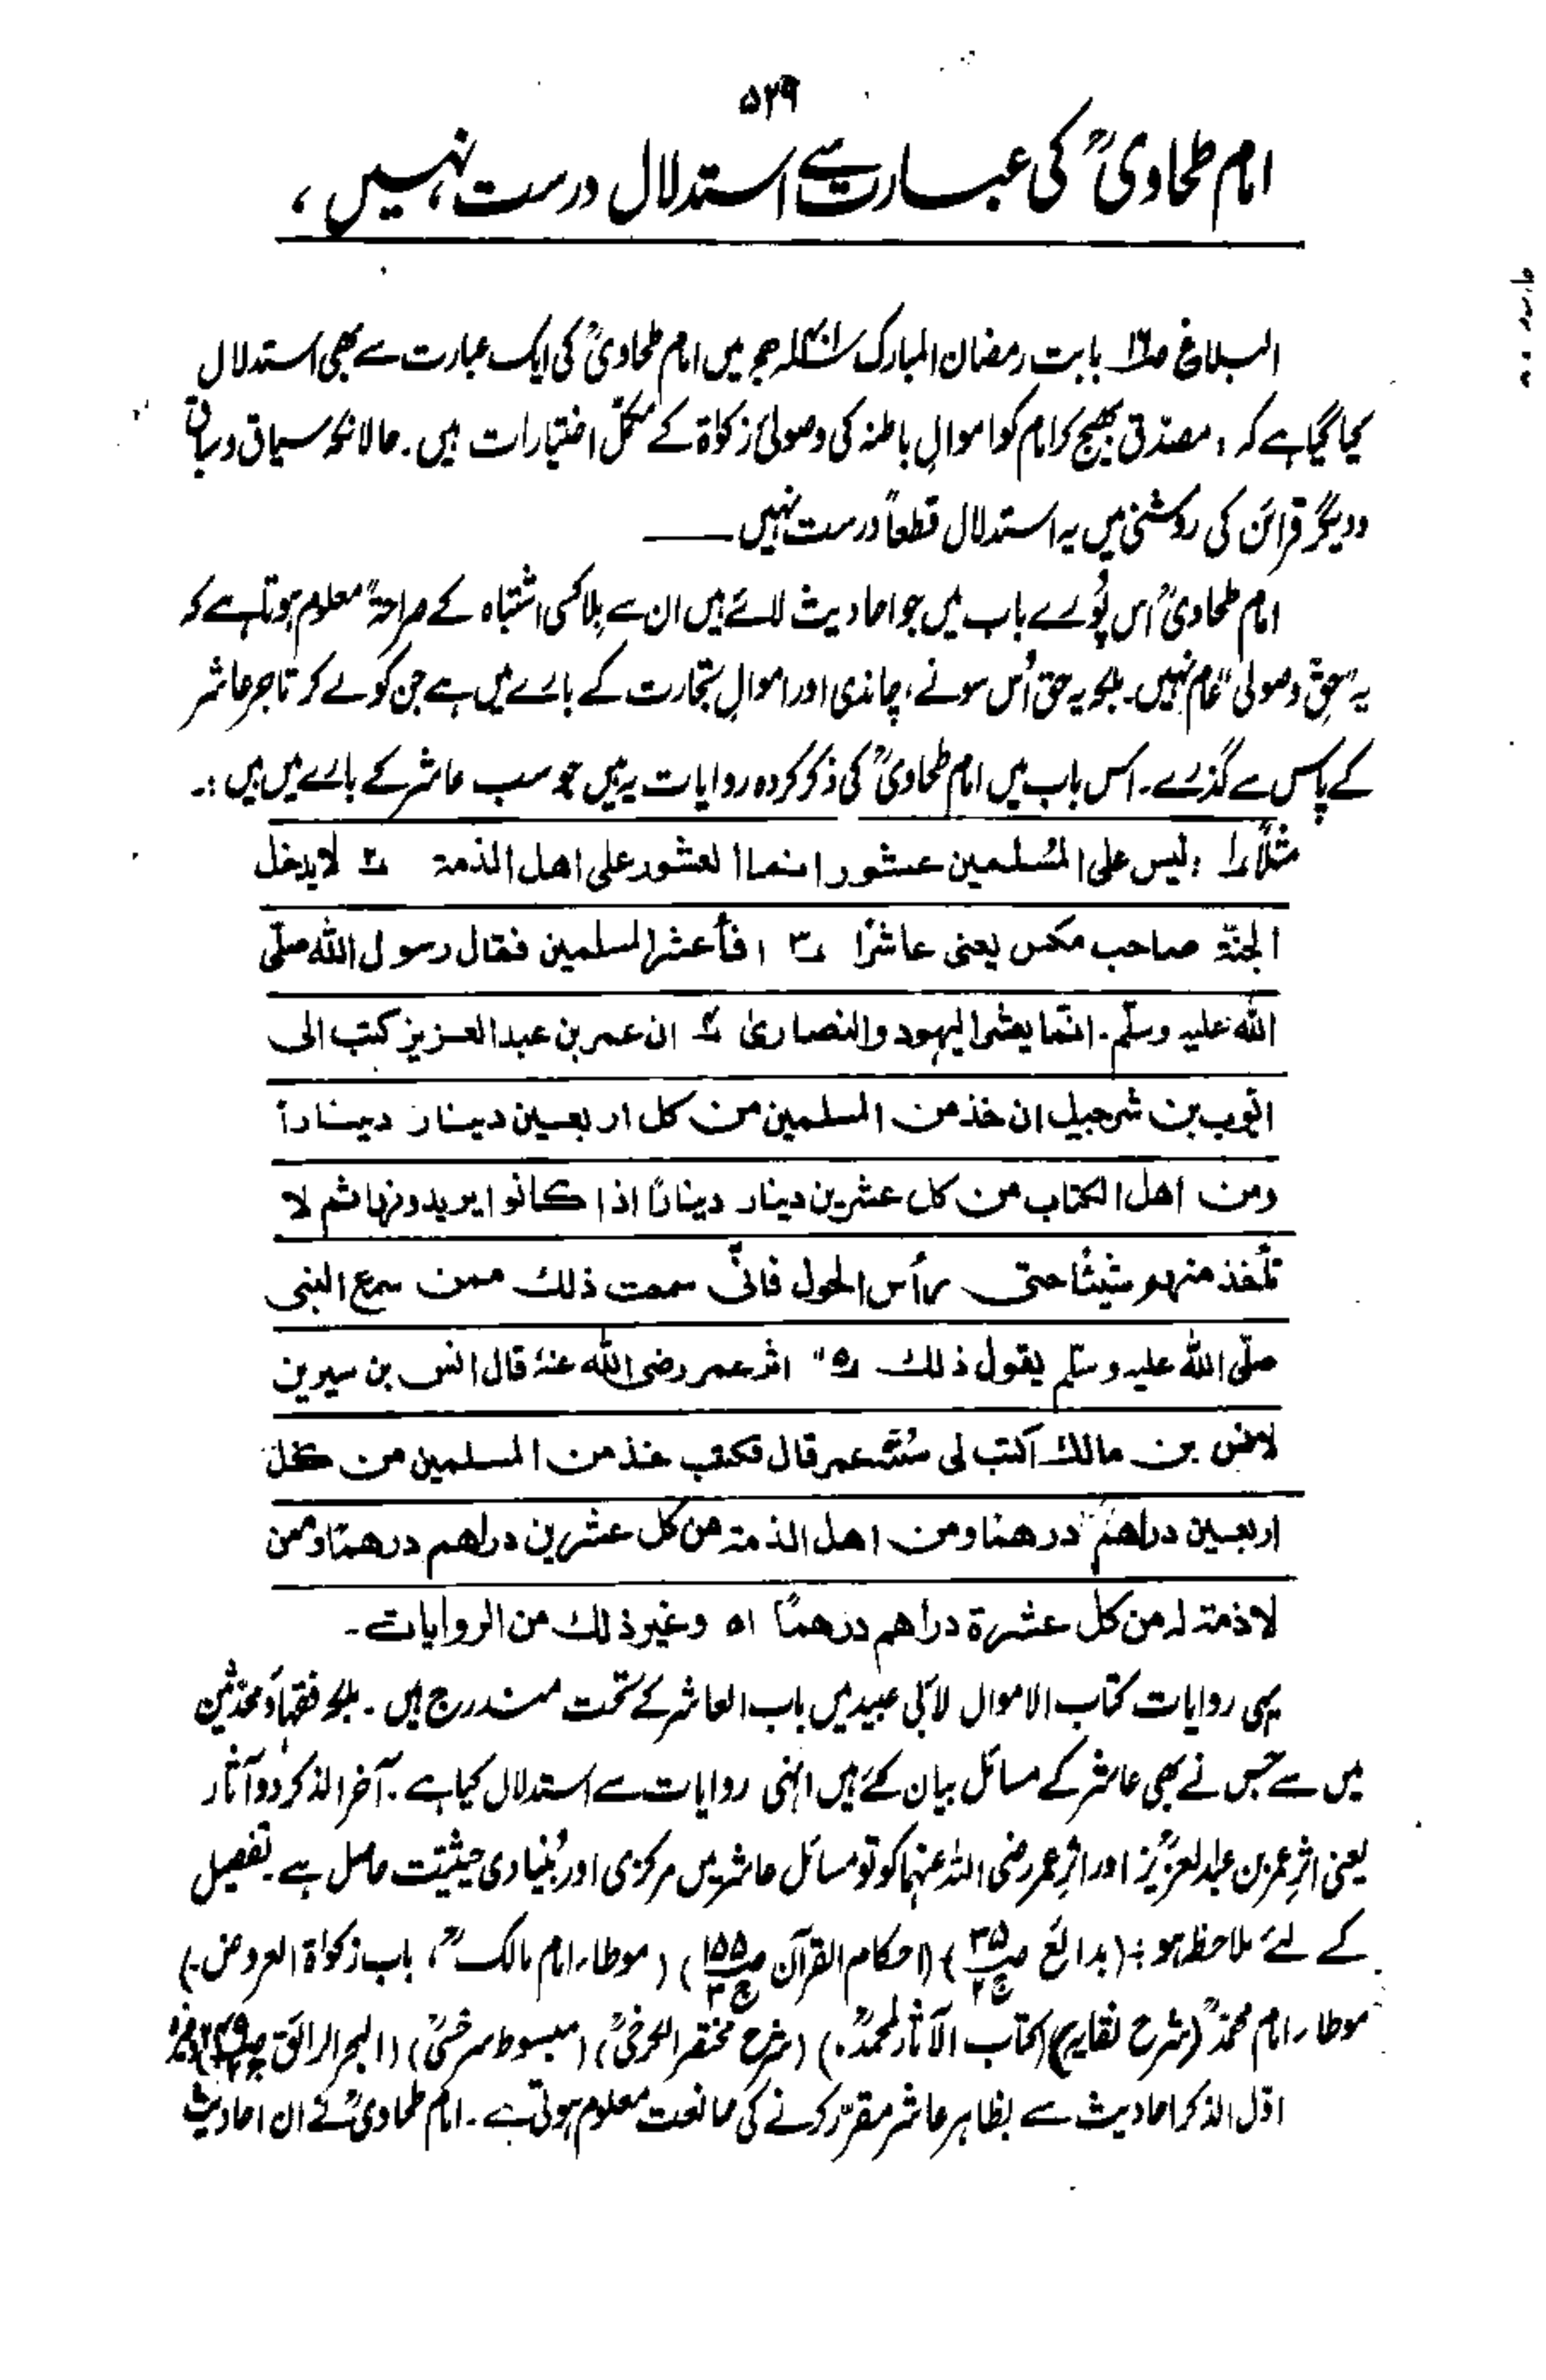 ۵۲۹
امام طحاویؒ کی عبارت سے استدلال درست نہیں،
البلاغ بابت رمضان المبارک ۱۴۰۱ھ میں امام طحاویؒ کی ایک عبارت سے بھی استدلال
کیا گیا ہے کہ، مصدّق بھیج کر امام کو اموالِ باطنہ کی وصولیٔ زکوٰۃ کے مکمل اختیارات ہیں۔ حالانکہ سیاق و سباق
و دیگر قرائن کی روشنی میں یہ استدلال قطعاً درست نہیں ــــــ
امام طحاویؒ اس پُورے باب میں جو احادیث لائے ہیں ان سے بِلا کسی اشتباہ کے صراحۃً معلوم ہوتا ہے کہ
یہ حق وصولی عام نہیں۔ بلکہ یہ حق اُس سونے، چاندی اور اموالِ تجارت کے بارے میں ہے جن کو لے کر تاجر عاشر
کے پاس سے گذرے۔ اس باب میں امام طحاویؒ کی ذکر کردہ روایات یہ ہیں جو سب عاشر کے بارے میں ہیں :۔
مثلاً ۱؎ لیس علی المُسلمین عشور انما العشور علی اهل الذمة ۲؎ لا یدخل
الجنّة صاحب مکس یعنی عاشرًا ۳؎ افأعشر المسلمین فقال رسول الله صلّی
الله علیه وسلّم۔ انّما یعشر الیهود والنصاریٰ ۴؎ ان عمر بن عبد العزیز کتب الی
ایّوب بن شرحبیل ان خذ من المسلمین من کل اربعین دینار دینارًا
ومن اهل الکتاب من کل عشرین دینار دینارًا اذا کانوا یریدونها ثم لا
تأخذ منهم شیئًا حتی رأس الحول فانّی سمعت ذلك ممن سمع النبی
صلّی الله علیه وسلّم یقول ذلك ۵؎ اثر عمر رضی الله عنه قال انس بن سیرین
لانس بن مالك اکتب لی سُنّة عمر قال فکتب خذ من المسلمین من کل
اربعین دراهم درهمًا ومن اهل الذمة من کل عشرین دراهم درهمًا وممن
لا ذمة له من کل عشرة دراهم درهمًا اه وغیر ذلك من الروایات۔
یہی روایات کتاب الاموال لابی عبید میں باب العاشر کے تحت مندرج ہیں۔ بلکہ فقہاء و محدّثین
میں سے جس نے بھی عاشر کے مسائل بیان کئے ہیں انہی روایات سے استدلال کیا ہے۔ آخر الذکر دو آثار
یعنی اثرِ عمر بن عبد العزیزؒ اور اثرِ عمر رضی اللہ عنہما کو تو مسائل عاشر میں مرکزی اور بُنیادی حیثیت حاصل ہے۔ تفصیل
کے لئے ملاحظہ ہو :۔ (بدائع ص۳۵ ج۲) (احکام القرآن ص۱۵۵ ج۳) (موطاء امام مالکؒ، باب زکوٰۃ العروض۔)
موطاء امام محمدؒ (شرح نقایہ) (کتاب الآثار لمحمدؒ۔) (شرح مختصر الکرخیؒ) (مبسوط سرخسیؒ) (البحر الرائق
اوّل الذکر احادیث سے بظاہر عاشر مقرّر کرنے کی ممانعت معلوم ہوتی ہے۔ امام طحاویؒ نے ان احادیث